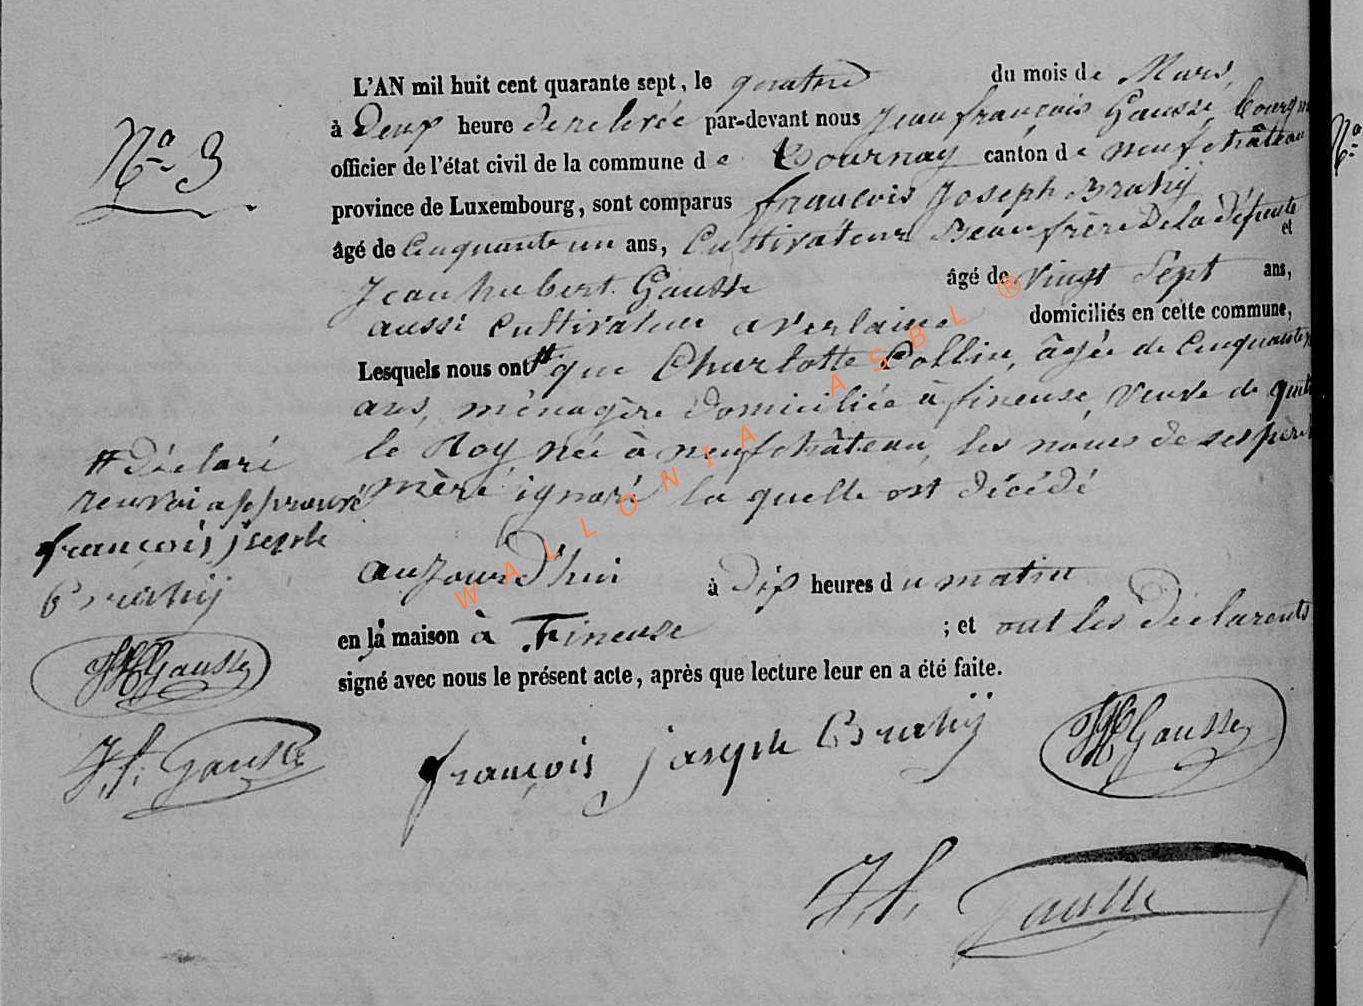 L'AN mil huit cent quarante sept, le quatre du mois de Mars,
à Deux heure de relevée par-devant nous Jean françois Gausse, bourgm
officier de l'état civil de la commune de tournay canton de neufchâteau
province de Luxembourg, sont comparus françois Joseph Brahy
âgé de Cinquante un ans, Cultivateur Beaufrère De la défunte
et
Jean hubert Gausse âgé de vingt Sept ans,
aussi Cultivateur a verlaine domiciliés en cette commune,
Lesquels nous ont # que Charlotte Collin, âgée de Cinquante
ans, ménagère domiciliée à fineuse, veuve de
le Roy née à neufchâteau, les noms de ses père
mère ignoré la quelle est décédé
aujourd'hui à Dix heures du matin
en la maison à Fineuse ; et ont les déclarents
signé avec nous le présent acte, après que lecture leur en a été faite.
N° 3
# déclaré
renvoi approuvé
françois jseph
Brahij
JH Gausse
J. f. Gausse
françois joseph Brahij
JH Gausse
J. f. Gausse
N°
WALLONIA ASBL ®